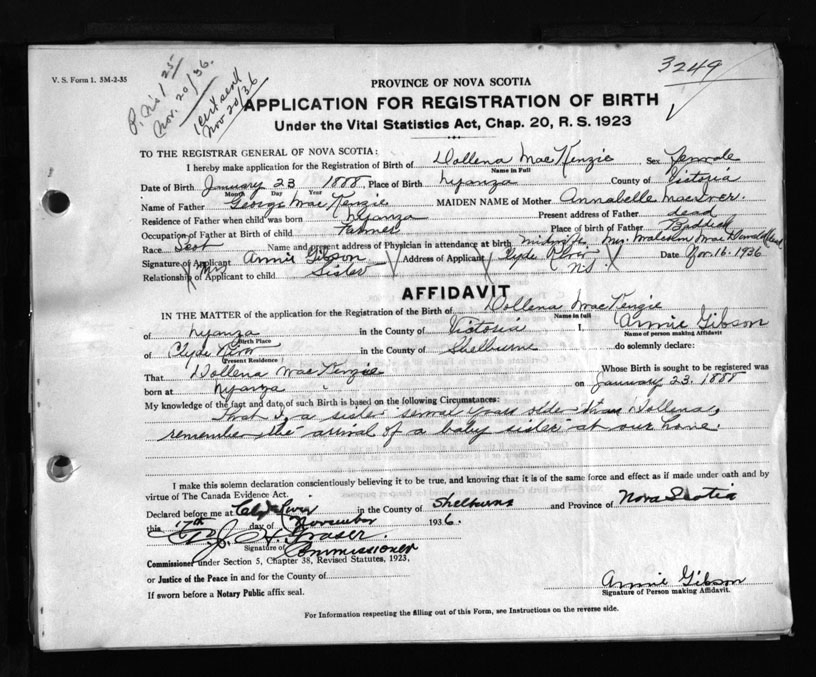 V. S. Form 1. 5M-2-35
Nov. 20/36.
Nov 20/36
3249
PROVINCE OF NOVA SCOTIA
APPLICATION FOR REGISTRATION OF BIRTH
Under the Vital Statistics Act, Chap. 20, R. S. 1923
TO THE REGISTRAR GENERAL OF NOVA SCOTIA:
I hereby make application for the Registration of Birth of Dollena MacKenzie Sex Female
Name in Full
Date of Birth January 23 1888 Place of Birth Nyanza County of Victoria
Month Day Year
Name of Father George MacKenzie MAIDEN NAME of Mother Annabelle MacIver
Residence of Father when child was born Nyanza Present address of Father dead
Occupation of Father at Birth of child Farmer Place of Birth of Father Baddeck
Race Scot Name and present address of Physician in attendance at birth midwife, Mrs. Malcolm MacDonald
Signature of Applicant Mrs Annie Gibson Address of Applicant Clyde River N.S. Date Nov. 16. 1936
Relationship of Applicant to child Sister
AFFIDAVIT
IN THE MATTER of the application for the Registration of the Birth of Dollena MacKenzie
Name in full
of Nyanza in the County of Victoria I. Annie Gibson
Birth Place Name of person making Affidavit
of Clyde River in the County of Shelburne do solemnly declare:
Present Residence
That Dollena MacKenzie Whose Birth is sought to be registered was
born at Nyanza on January 23. 1888
My knowledge of the fact and date of such Birth is based on the following Circumstances:
That I, a sister several years older than Dollena,
remember the arrival of a baby sister at our home.
I make this solemn declaration conscientiously believing it to be true, and knowing that it is of the same force and effect as if made under oath and by
virtue of The Canada Evidence Act.
Declared before me at Clyde River in the County of Shelburne and Province of Nova Scotia
this 17th day of November 1936.
Fraser.
Signature of Commissioner
Commissioner under Section 5, Chapter 38, Revised Statutes, 1923,
or Justice of the Peace in and for the County of
If sworn before a Notary Public affix seal.
Annie Gibson
Signature of Person making Affidavit.
For Information respecting the filling out of this Form, see Instructions on the reverse side.